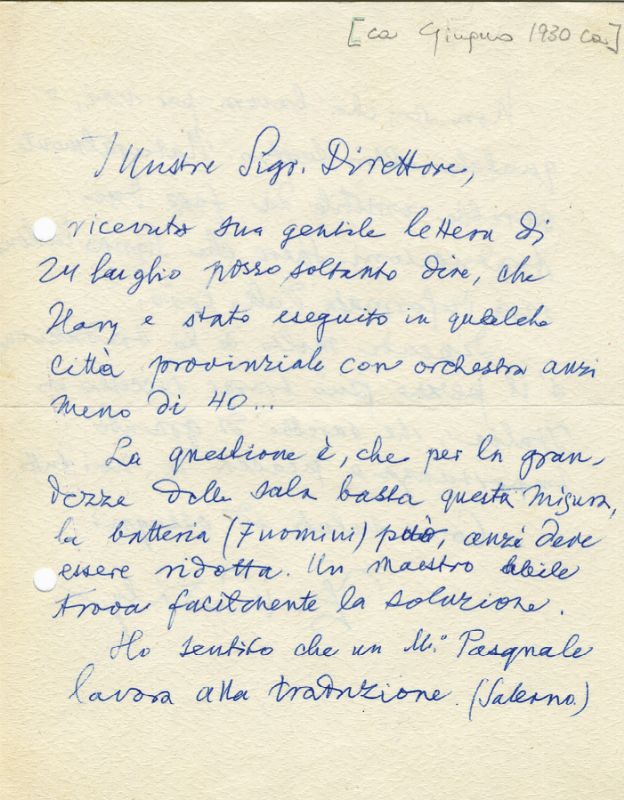 [ca Giugno 1930 ca]
Illustre Sigr. Direttore,
ricevuto sua gentile lettera di
24 luglio posso soltanto dire, che
Hary e stato eseguito in qualche
città provinziale con orchestra anzi
meno di 40...
La questione è, che per la gran-
dezze delle sala basta questa misura,
la batteria (7 uomini) può, anzi deve
essere ridotta. Un maestro abile
trova facilmente la soluzione.
Ho sentito che un Mo. Pasquale
lavora alla traduzione. (Salerno)